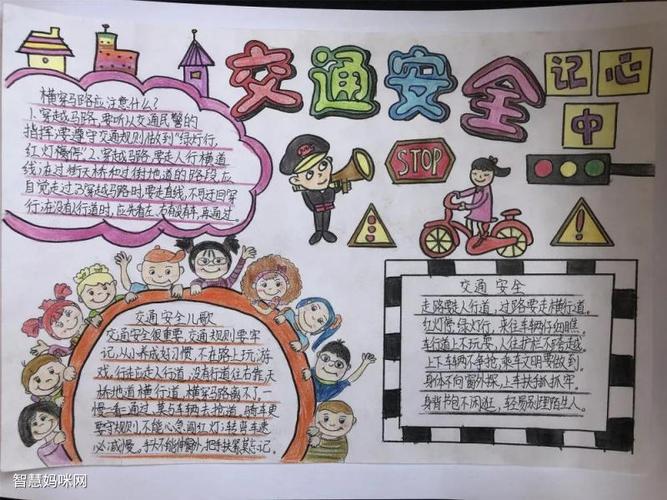 交通安全
记心
中
横穿马路应注意什么?
1.穿越马路,要听从交通民警的
指挥;要遵守交通规则,做到“绿灯行,
红灯停”2、穿越马路,要走人行横道
线;在过街天桥和过街地道的路段,应
自觉走过3.穿越马路时,要走直线,不可迂回穿
行;在没人行道时,应先看左,右有没有车,再通过。
STOP
交通安全儿歌
交通安全很重要,交通规则要牢
记,从小养成好习惯,不在路上玩游
戏,行走应走人行道,没有行道往右靠,天
桥地道横行道,横穿马路离不了,一
慢二看三通过,莫与车辆去抢道,骑车更
要守规则,不能心急闯红灯;转弯车速
必减慢。手大不能伸窗外,把手扶紧莫忘记。
交通安全
走路要走人行道,过路要走横行道。
红灯停绿灯行,来往车辆仔细瞧。
车行道上不玩耍,人往护栏不跨越。
上下车辆不争抢,乘车文明要做到。
身体不向窗外探,上车扶排抓牢。
身背书包不闲逛,轻易别理陌生人。
智慧妈咪网